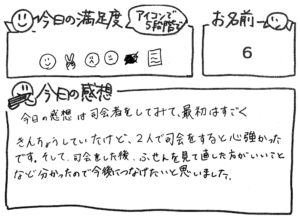 今日の満足度
アイコンで
5段階で
お名前
6
今日の感想
今日の感想は司会者をしてみて、最初はすごく
きんちょうしていたけど、2人で司会をすると心強かった
です。そして、司会をした後、ふせんを見て通した方がいいこと
など分かったので今後につなげたいと思いました。